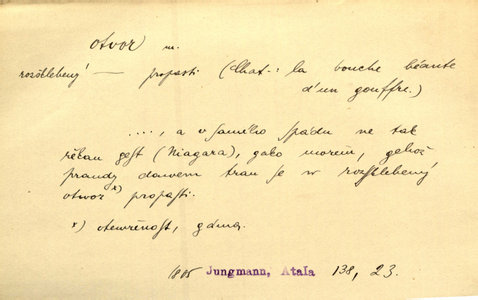 otvor m.
rozšklebený — propasti (Chat.: la bouche béante
d'un gouffre.)
...., a v samého spádu ne tak
řěkau gest (Niagara), gako mořem, gehož
praudy dawem
se w rozšklebený
otwor x) propasti.
x) otewřěnost,
1805 Jungmann, Atala 138, 23.